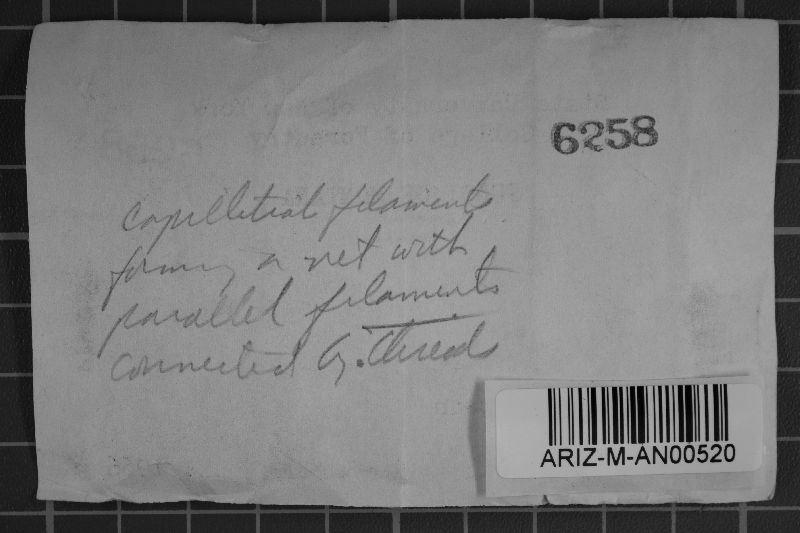 6258
capilletial filaments
forming a net with
parallel filaments
connected by threads
ARIZ-M-AN00520